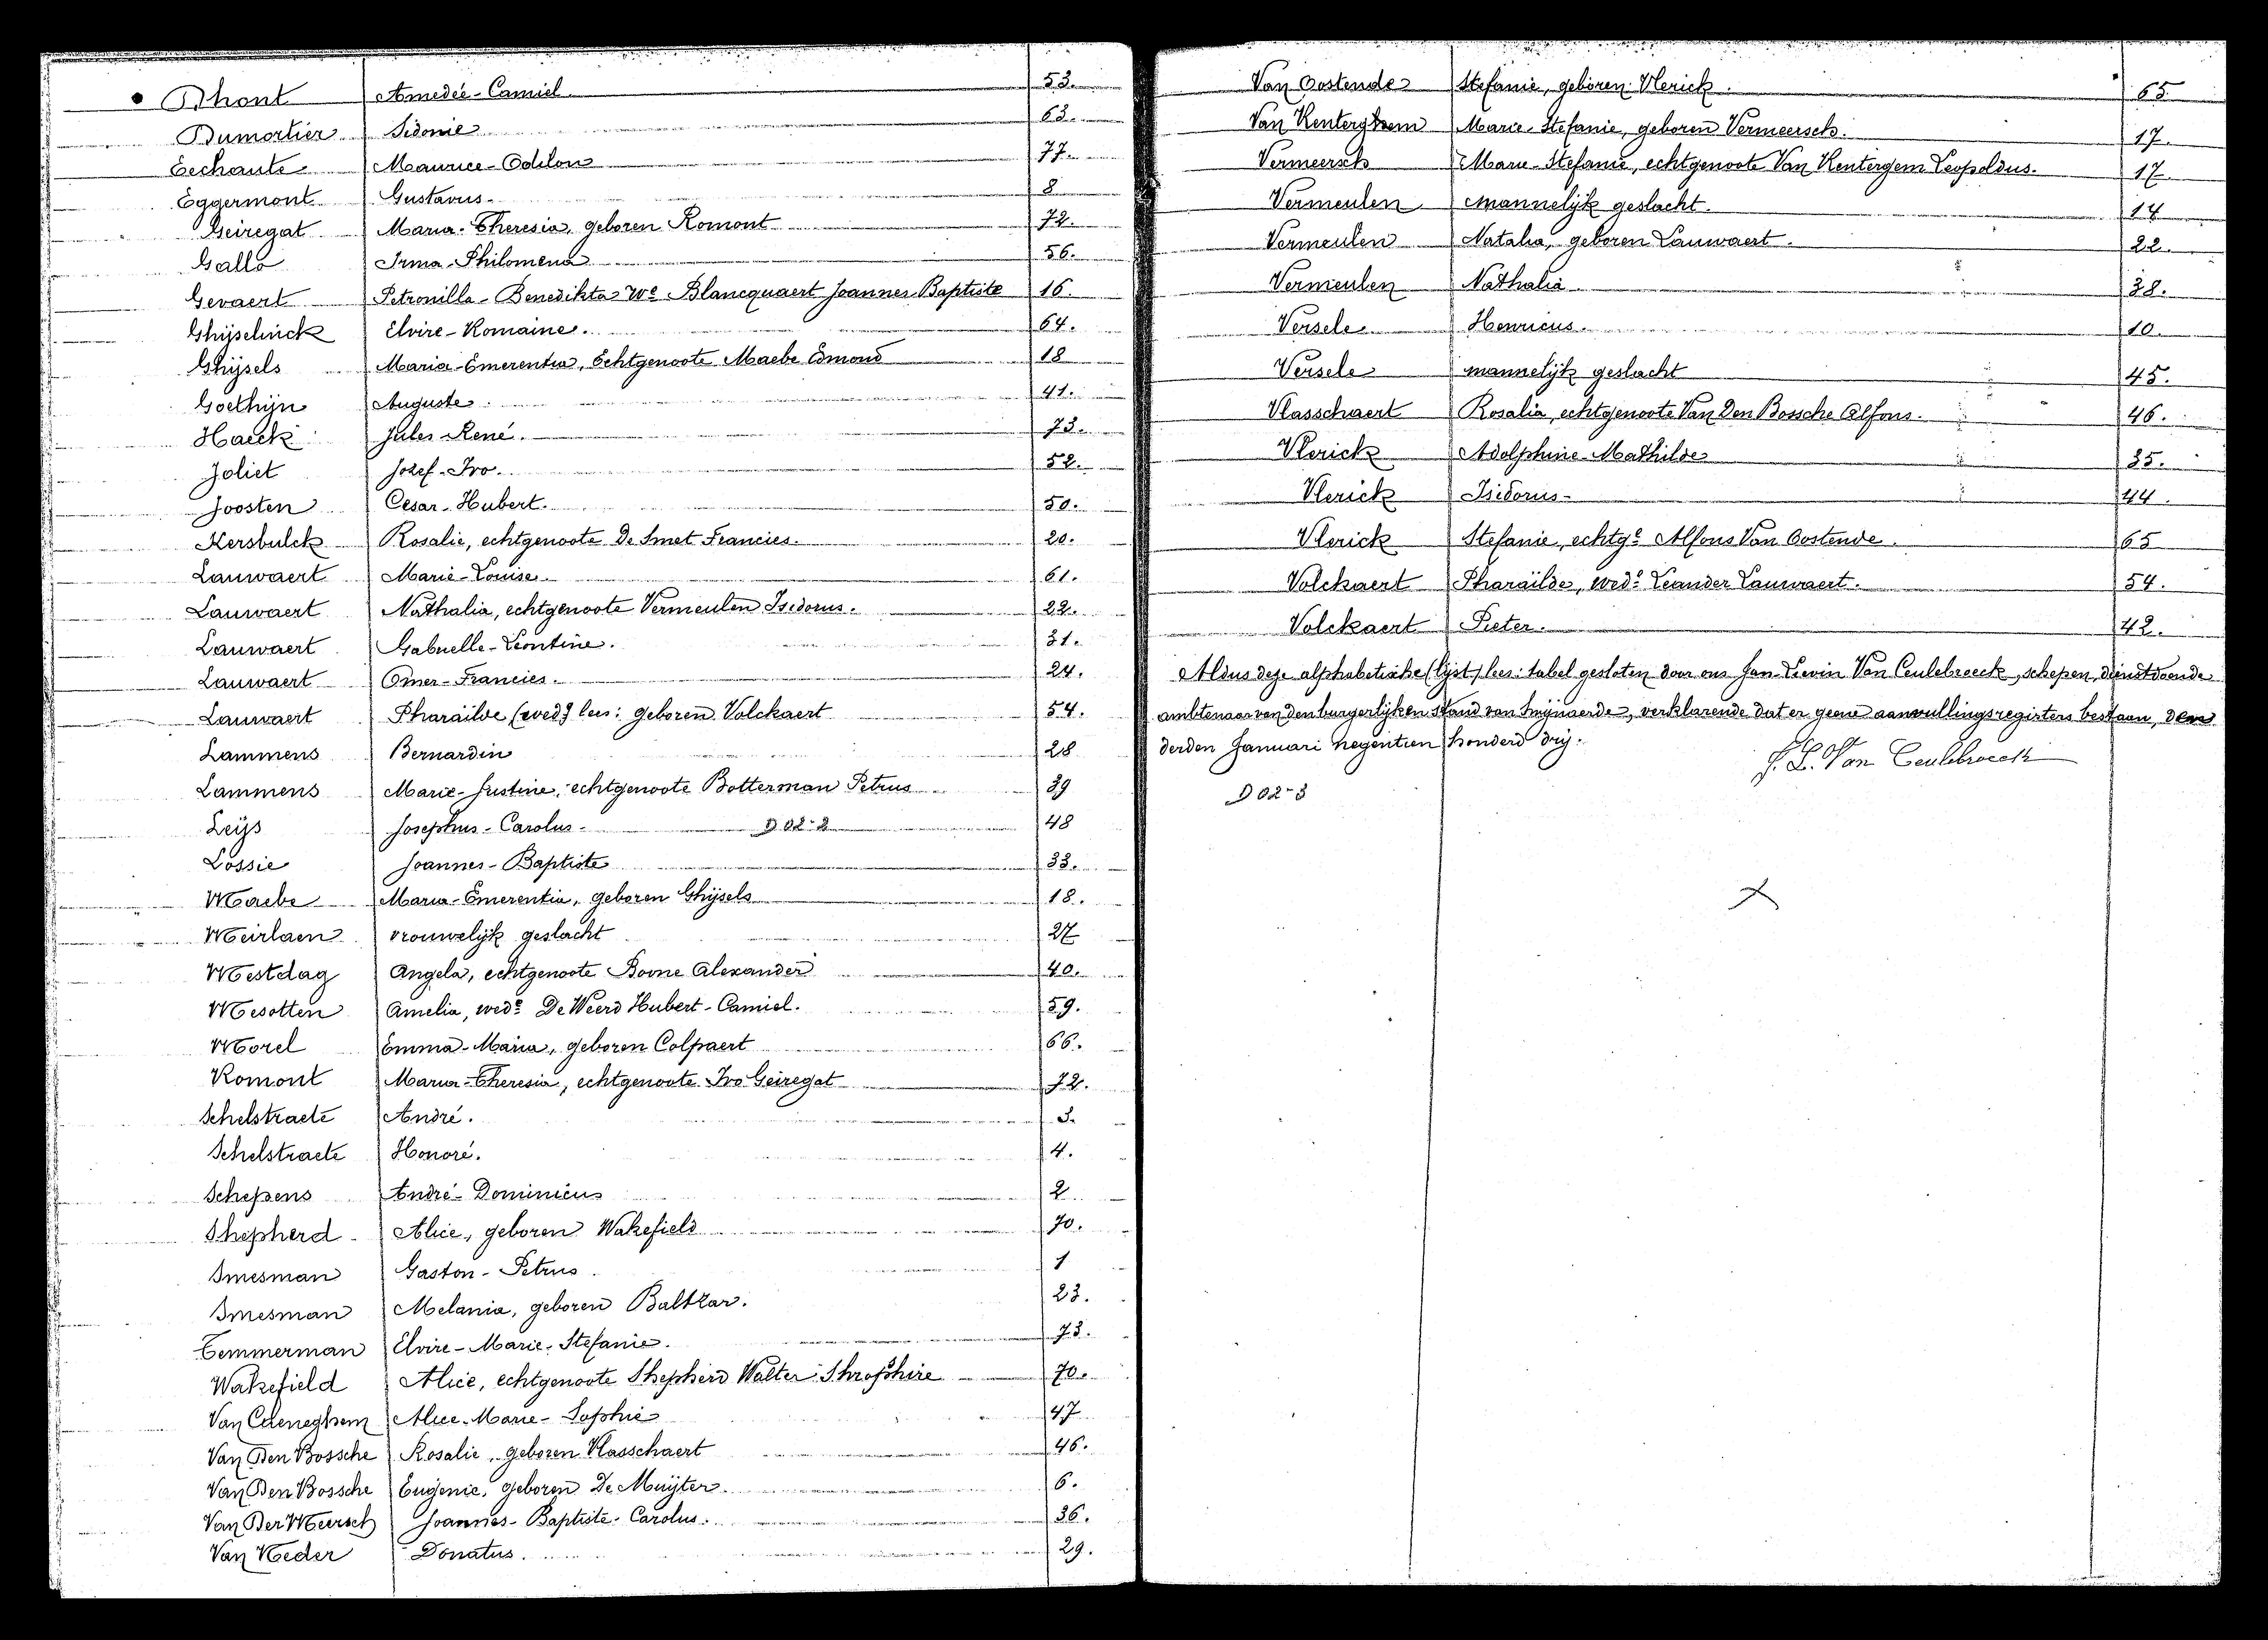 Dhont Amedée-Camiel 53.
Dumortier Sidonie 63.
Eechaute Maurice-Odilon 77.
Eggermont Gustavus. 8
Geiregat Maria-Theresia, geboren Romont 72.
Gallo Irma-Philomena 56.
Gevaert Petronilla-Benedikta We Blancquaert Joannes Baptiste 16.
Ghijselinck Elvire-Romaine. 64.
Ghijsels Maria-Emerentia, Echtgenoote Maebe Edmond 18
Goethijn Auguste. 41.
Haeck Jules René. 73.
Joliet Jozef-Ivo. 52.
Joosten Cesar-Hubert. 50.
Kersbulck Rosalie, echtgenoote De Smet Francies. 20.
Lauwaert Marie-Louise. 61.
Lauwaert Nathalia, echtgenoote Vermeulen Isidorus. 22.
Lauwaert Gabrielle-Leontine. 31.
Lauwaert Omer-Francies. 24.
Lauwaert Pharaïlde (wed) lees: geboren Volckaert 54.
Lammens Bernardin 28
Lammens Marie-Justine, echtgenoote Botterman Petrus 39
Leijs Josephus-Carolus. D 02-2 48
Lossie Joannes-Baptiste 33.
Maebe Maria-Emerentia, geboren Ghijsels 18.
Meirlaen vrouwelijk geslacht 27
Mestdag Angela, echtgenoote Boone Alexander 40.
Mesotten Amelia, wede De Weerd Hubert-Camiel. 59.
Morel Emma-Maria, geboren Colpaert 66.
Romont Maria-Theresia, echtgenoote Ivo Geiregat 72.
Schelstraete André. 3.
Schelstraete Honoré. 4.
Schepens André-Dominicus 2
Shepherd Alice, geboren Wakefield 70.
Smesman Gaston-Petrus 1
Smesman Melania, geboren Baltzar. 23.
Temmerman Elvire-Marie-Stefanie. 73.
Wakefield Alice, echtgenoote Shepherd Walter Shropshire 70.
Van Caeneghem Alice-Marie-Sophie 47
Van Den Bossche Rosalie, geboren Vlasschaert 46.
Van Den Bossche Eugenie, geboren De Muijter. 6.
Van Der Meersch Joannes-Baptiste-Carolus. 36.
Van Heder Donatus. 29.
Van Oostende Stefanie, geboren Vlerick. 65
Van Kenterghem Marie-Stefanie, geboren Vermeersch. 17.
Vermeersch Marie-Stefanie, echtgenoote Van Kentergem Leopoldus. 17
Vermeulen Mannelijk geslacht. 14
Vermeulen Natalia, geboren Lauwaert. 22.
Vermeulen Nathalia 38.
Versele Henricus. 10.
Versele mannelijk geslacht 45.
Vlasschaert Rosalia, echtgenoote Van Den Bossche Alfons. 46.
Vlerick Adolphine-Mathilde 35.
Vlerick Isidorus. 44.
Vlerick Stefanie, echtge Alfons Van Oostende. 65
Volckaert Pharaïlde, wede Leander Lauwaert. 54.
Volckaert Pieter. 42.
Aldus deze alphabetische (lijst) lees: tabel gesloten door ons Jan-Lievin Van Ceulebroeck, schepen, dienstdoende
ambtenaar van den burgerlijken stand van Swijnaerde, verklarende dat er geene aanvullingsregisters bestaan, den
derden Januari negentien honderd drij.
J. L. Van Ceulebroeck
D 02-3